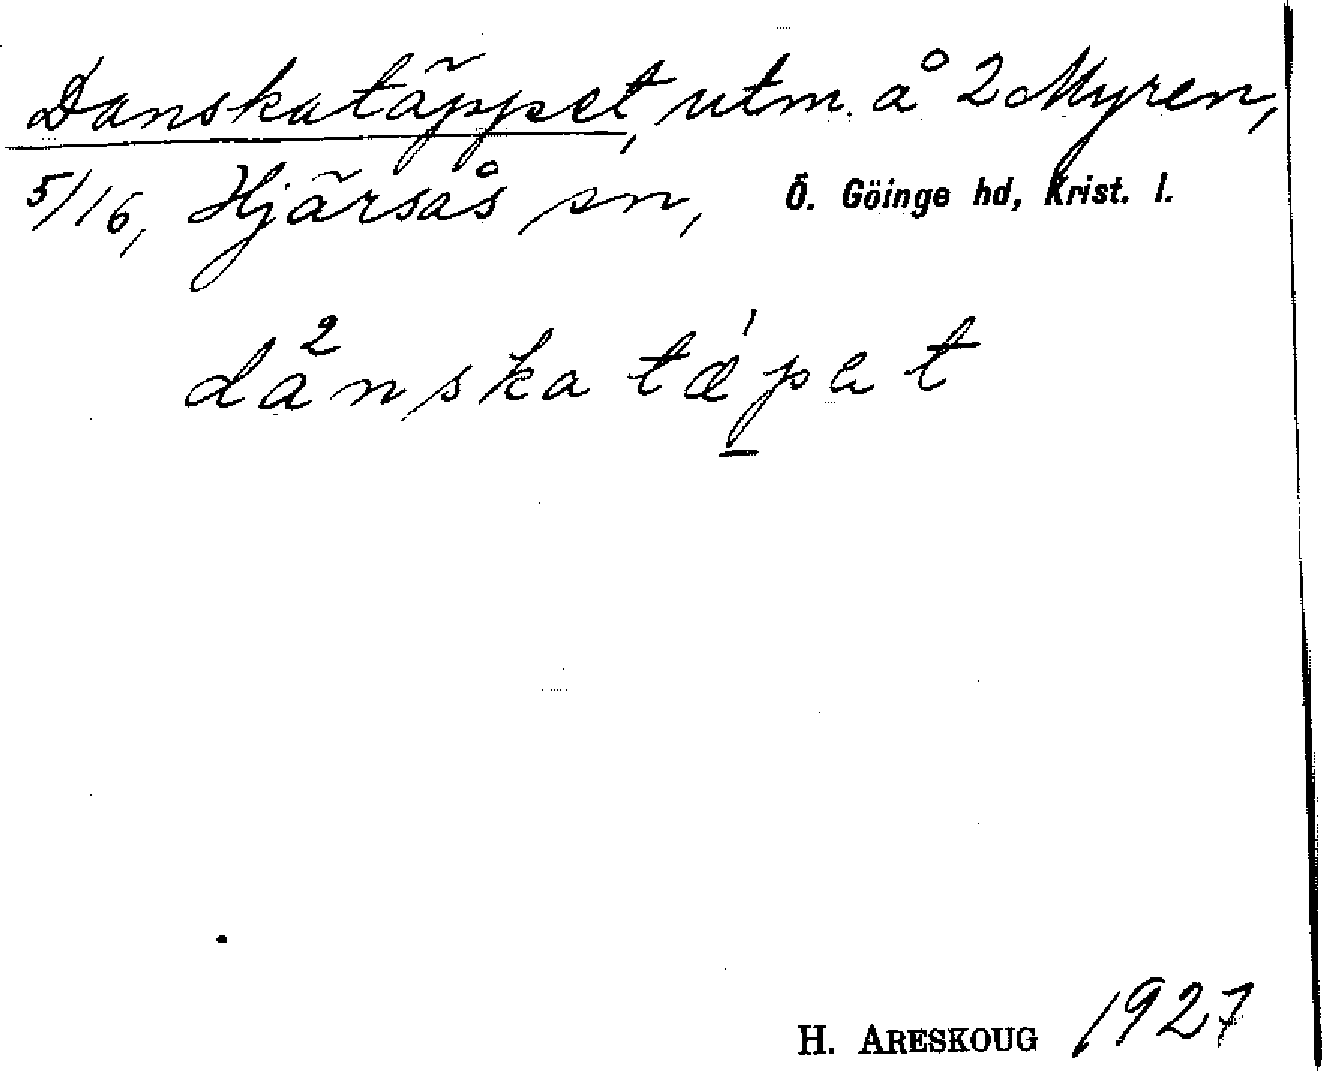 Danskatäppet, utm. å 2 Myren,
5/16, Hjärsås sn, Ö. Göinge hd, Krist. l.
da²nska tæ´pet
H. ARESKOUG 1927